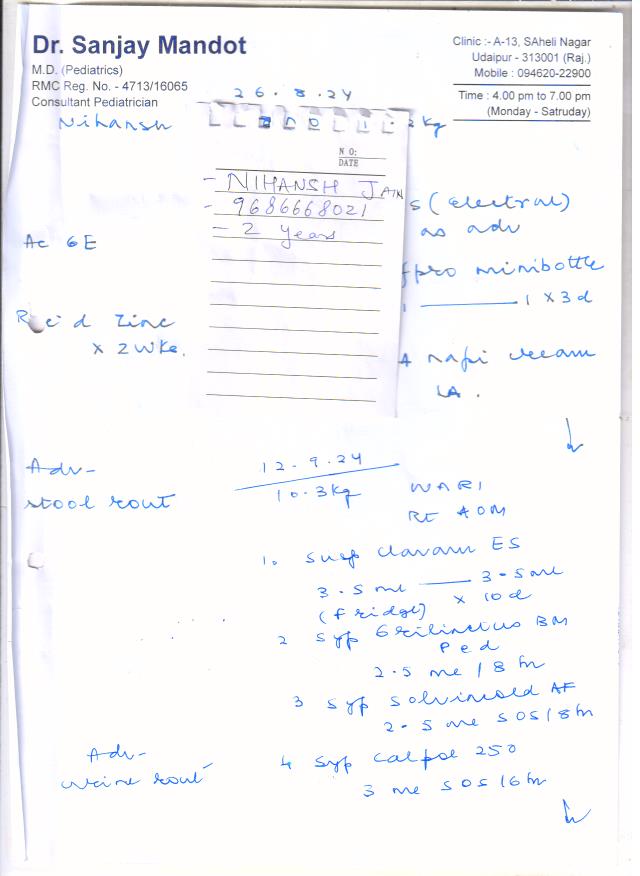 Dr. Sanjay Mandot
M.D. (Pediatrics)
RMC Reg. No. - 4713/16065
Consultant Pediatrician
Clinic :- A-13, SAheli Nagar
Udaipur - 313001 (Raj.)
Mobile : 094620-22900
Time : 4.00 pm to 7.00 pm
(Monday - Satruday)
26.8.24
Nihansh
2kg
N O:
DATE
- NIHANSH JAIN
- 9686668021
- 2 years
S (electral)
as adv
Ac GE
pro minibottle
1 1 x 3 d
Zinc
x 2 wks.
LA.
Adv-
stool rout
12.9.24
10.3kg
WARI
RE AOM
1. Susp clavam ES
3.5 ml 3.5 ml
(fridge) x 10 d
2 Syp Grilinctus BM
Ped
2.5 ml / 8 hr
3 Syp Solvincold AF
2.5 ml SOS / 8 hr
Adv-
urine rout
4 Syp Calpol 250
3 ml SOS / 6 hr